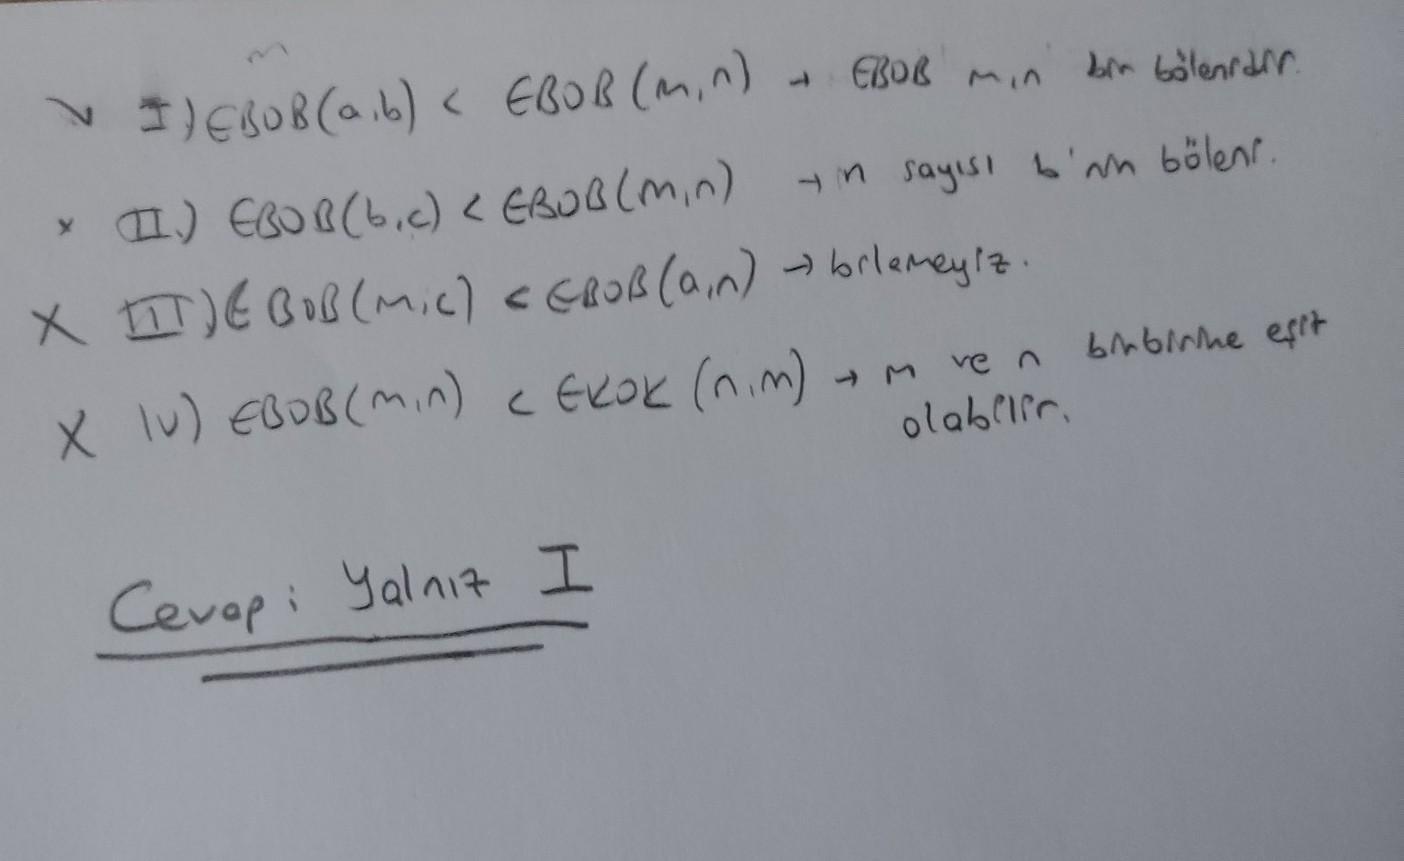 m
I) EBOB(a,b) < EBOB(m,n) → EBOB m,n bir bölenidir.
x II.) EBOB(b,c) < EBOB(m,n) → n sayısı b'nin böleni.
X III) EBOB(m,c) < EBOB(a,n) → bilemeyiz.
X IV) EBOB(m,n) < EKOK (n,m) → m ve n birbirine eşit
olabilir.
Cevap: Yalnız I